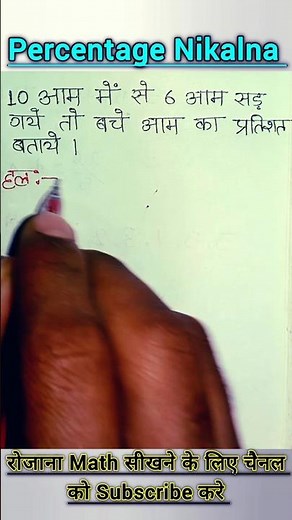 Percentage Nikalna
10 आम में से 6 आम सड़
गये तो बचे आम का प्रतिशत
बताये ।
हल :-
रोजाना Math सीखने के लिए चैनल
को Subscribe करे